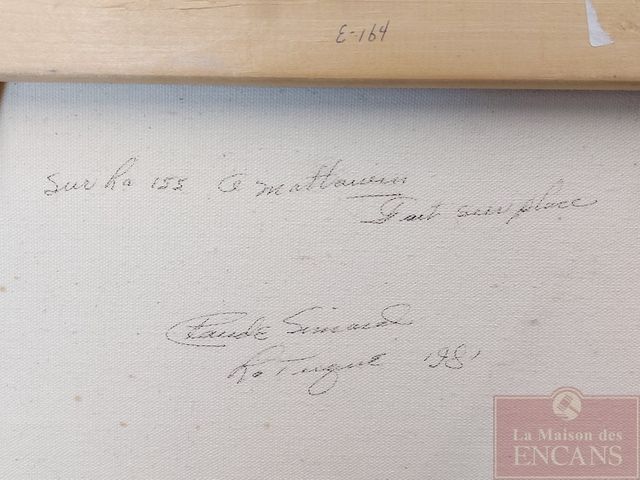 E-164
Sur La 155 à Mattawin
Fait sur place
Claude Simard
La Tuque '81
La Maison des
ENCANS